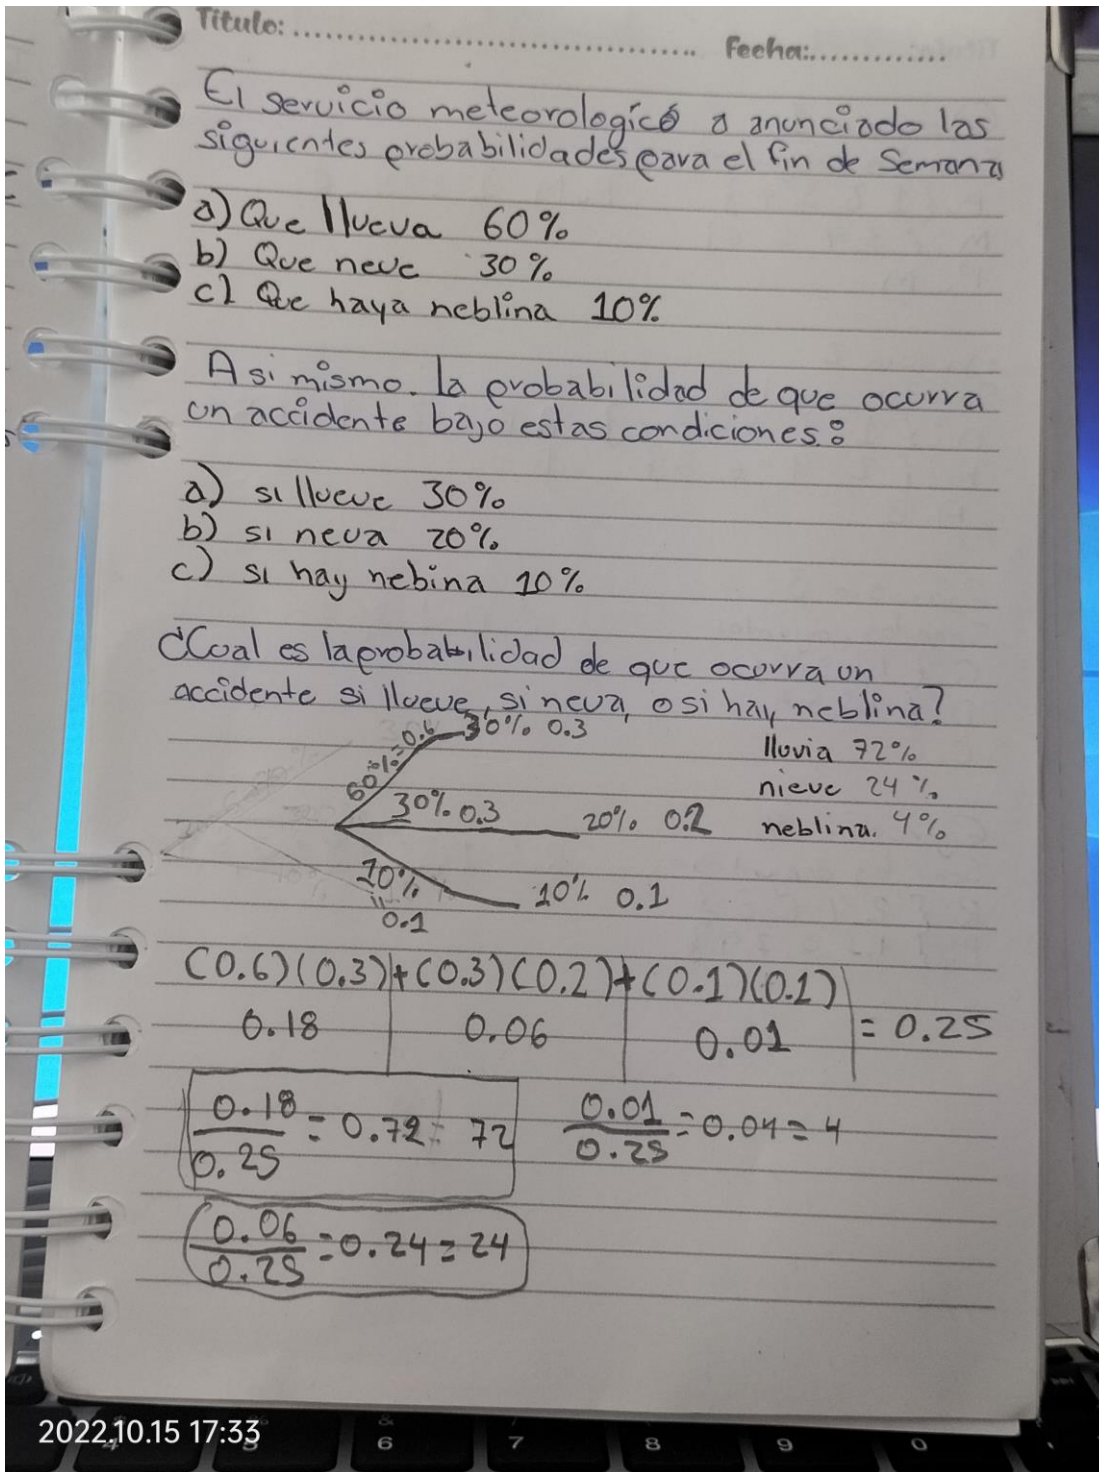 Titulo: Fecha:
El servicio meteorologicó a anunciado las
siguientes probabilidades para el fin de Semana
a) Que llueva 60%
b) Que neve 30%
c) Que haya neblina 10%
Asi mismo. la probabilidad de que ocurra
un accidente bajo estas condiciones:
a) si llueve 30%
b) si neva 20%
c) si hay nebina 10%
¿Cual es la probabilidad de que ocurra un
accidente si llueve, si neva, o si hay neblina?
60% = 0.6 30% 0.3 lluvia 72%
nieve 24%
30% 0.3 20% 0.2 neblina. 4%
10% 10% 0.1
0.1
(0.6)(0.3)+(0.3)(0.2)+(0.1)(0.1)
0.18 0.06 0.01 = 0.25
0.18/0.25 = 0.72 = 72 0.01/0.25 = 0.04 = 4
0.06/0.25 = 0.24 = 24
2022.10.15 17:33
4 5 6 7 8 9 0